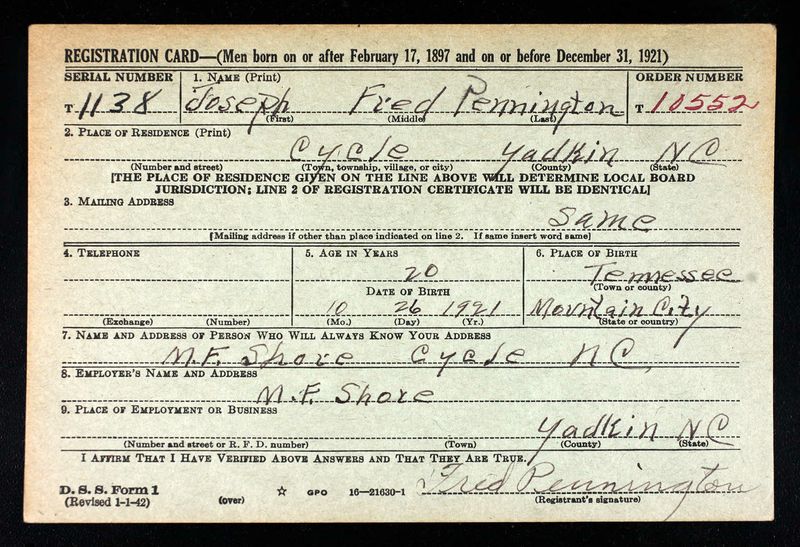 REGISTRATION CARD—(Men born on or after February 17, 1897 and on or before December 31, 1921)
SERIAL NUMBER 1. NAME (Print) ORDER NUMBER
T 1138 Joseph Fred Pennington T 10552
(First) (Middle) (Last)
2. PLACE OF RESIDENCE (Print)
Cycle Yadkin NC
(Number and street) (Town, township, village, or city) (County) (State)
[THE PLACE OF RESIDENCE GIVEN ON THE LINE ABOVE WILL DETERMINE LOCAL BOARD
JURISDICTION; LINE 2 OF REGISTRATION CERTIFICATE WILL BE IDENTICAL]
3. MAILING ADDRESS
Same
[Mailing address if other than place indicated on line 2. If same insert word same]
4. TELEPHONE 5. AGE IN YEARS 6. PLACE OF BIRTH
20 Tennessee
(Town or county)
DATE OF BIRTH
10 26 1921 Mountain City
(Exchange) (Number) (Mo.) (Day) (Yr.) (State or country)
7. NAME AND ADDRESS OF PERSON WHO WILL ALWAYS KNOW YOUR ADDRESS
M.F. Shore Cycle NC
8. EMPLOYER'S NAME AND ADDRESS
M.F. Shore
9. PLACE OF EMPLOYMENT OR BUSINESS
Yadkin NC
(Number and street or R. F. D. number) (Town) (County) (State)
I AFFIRM THAT I HAVE VERIFIED ABOVE ANSWERS AND THAT THEY ARE TRUE.
Fred Pennington
D. S. S. Form 1
(Revised 1-1-42) (over) ☆ GPO 16—21630-1 (Registrant's signature)